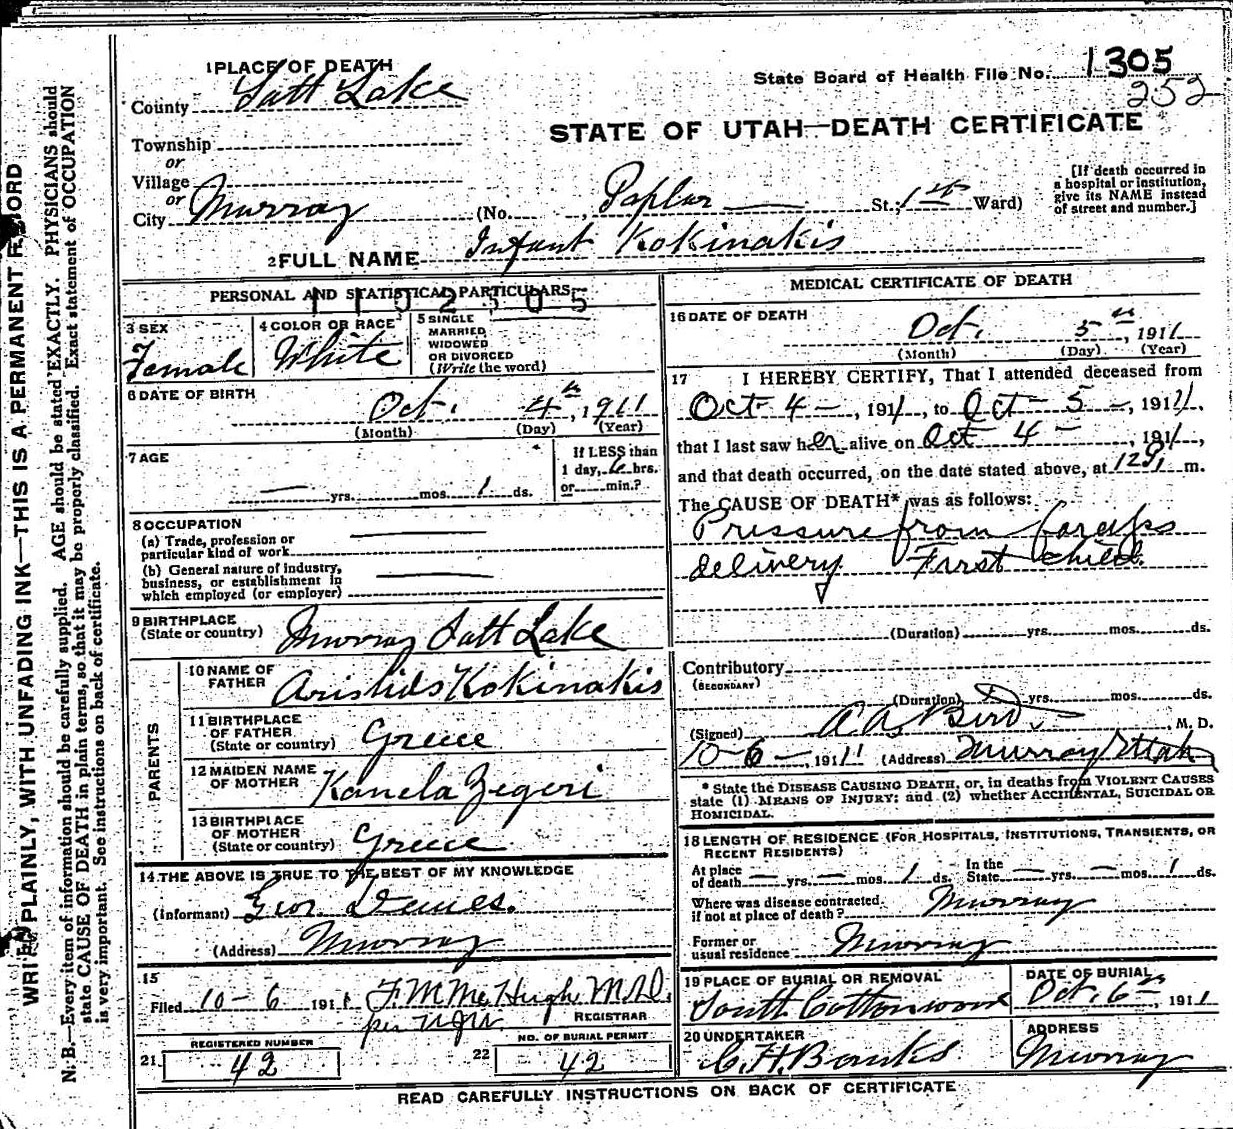 1 PLACE OF DEATH
County Salt Lake
Township
or
Village
or
City Murray (No. , Poplar St.; 1st Ward)
State Board of Health File No. 1305
252
STATE OF UTAH—DEATH CERTIFICATE
[If death occurred in a hospital or institution, give its NAME instead of street and number.]
2 FULL NAME Infant Kokinakis
PERSONAL AND STATISTICAL PARTICULARS
1102505
3 SEX Female
4 COLOR OR RACE White
5 SINGLE MARRIED WIDOWED OR DIVORCED (Write the word)
6 DATE OF BIRTH Oct. 4th, 1911
(Month) (Day) (Year)
7 AGE — yrs. mos. 1 ds.
If LESS than 1 day, 6 hrs. or min.?
8 OCCUPATION
(a) Trade, profession or particular kind of work
(b) General nature of industry, business, or establishment in which employed (or employer)
9 BIRTHPLACE (State or country) Murray Salt Lake
PARENTS
10 NAME OF FATHER Aristids Kokinakis
11 BIRTHPLACE OF FATHER (State or country) Greece
12 MAIDEN NAME OF MOTHER Kanela Zegeri
13 BIRTHPLACE OF MOTHER (State or country) Greece
14 THE ABOVE IS TRUE TO THE BEST OF MY KNOWLEDGE
(Informant) Geor
(Address) Murray
15
Filed 10-6 1911 F. M. McHugh M.D.
REGISTRAR
per
REGISTERED NUMBER
21 42
NO. OF BURIAL PERMIT
22 42
MEDICAL CERTIFICATE OF DEATH
16 DATE OF DEATH
Oct. 5th, 1911
(Month) (Day) (Year)
17 I HEREBY CERTIFY, That I attended deceased from
Oct 4 —, 1911, to Oct — 5 —, 1911,
that I last saw her alive on Oct 4 —, 1911,
and that death occurred, on the date stated above, at m.
The CAUSE OF DEATH* was as follows:
Pressure from forceps
delivery First child.
(Duration) yrs. mos. ds.
Contributory
(SECONDARY)
(Duration) yrs. mos. ds.
(Signed) A A Bird, M. D.
10-6-, 1911 (Address) Murray Utah
* State the DISEASE CAUSING DEATH, or, in deaths from VIOLENT CAUSES
state (1) MEANS OF INJURY; and (2) whether ACCIDENTAL, SUICIDAL OR
HOMICIDAL.
18 LENGTH OF RESIDENCE (FOR HOSPITALS, INSTITUTIONS, TRANSIENTS, OR
RECENT RESIDENTS)
At place of death — yrs. — mos. 1 ds. In the State — yrs. — mos. 1 ds.
Where was disease contracted, if not at place of death? Murray
Former or usual residence Murray
19 PLACE OF BURIAL OR REMOVAL
South Cottonwood
DATE OF BURIAL
Oct. 6th, 1911
20 UNDERTAKER
ADDRESS
Murray
READ CAREFULLY INSTRUCTIONS ON BACK OF CERTIFICATE
WRITE PLAINLY, WITH UNFADING INK—THIS IS A PERMANENT RECORD
N. B.—Every item of information should be carefully supplied. AGE should be stated EXACTLY. PHYSICIANS should
state CAUSE OF DEATH in plain terms, so that it may be properly classified. Exact statement of OCCUPATION
is very important. See instructions on back of certificate.